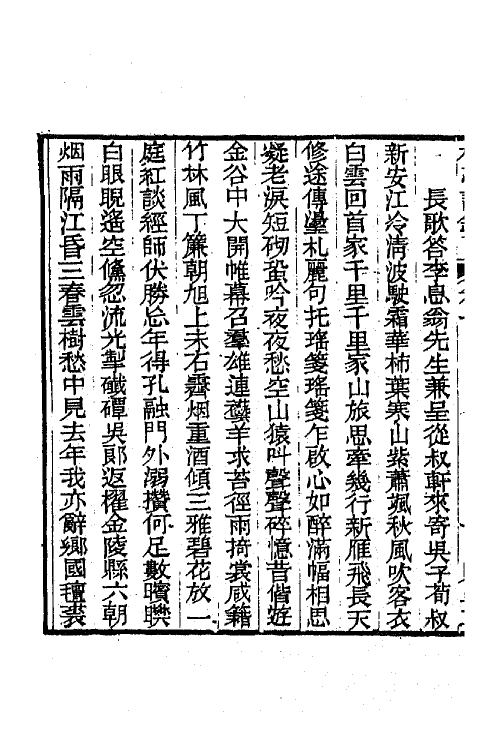 長歌答李息翁先生兼呈從叔軒來寄吳子荀叔
新安江冷清波駛霜華柿葉寒山紫蕭颯秋風吹客衣
白雲回首家千里千里家山旅思牽幾行新雁飛長天
修途傳遽札麗句托瑤箋瑤箋乍啟心如醉滿幅相思
凝老淚短砌蛩吟夜夜愁空山猿叫聲聲碎憶昔偕遊
金谷中大開帷幕召羣雄連鑣羊求苔徑雨掎裳咸籍
竹林風丁簾朝旭上未石霽烟重酒傾三雅碧花放一
庭紅談經師伏勝忘年得孔融門外溺攢何足數曠睽
白眼睨遙空儵忽流光掣殲磹吳郎返櫂金陵縣六朝
烟雨隔江昏三春雲樹愁中見去年我亦辭鄉國氊裘